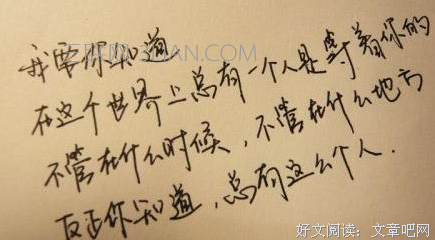 我要你知道
在这个世界上总有一个人是等着你的
不管在什么时候，不管在什么地方
反正你知道，总有这么个人.
好文阅读：文章吧网